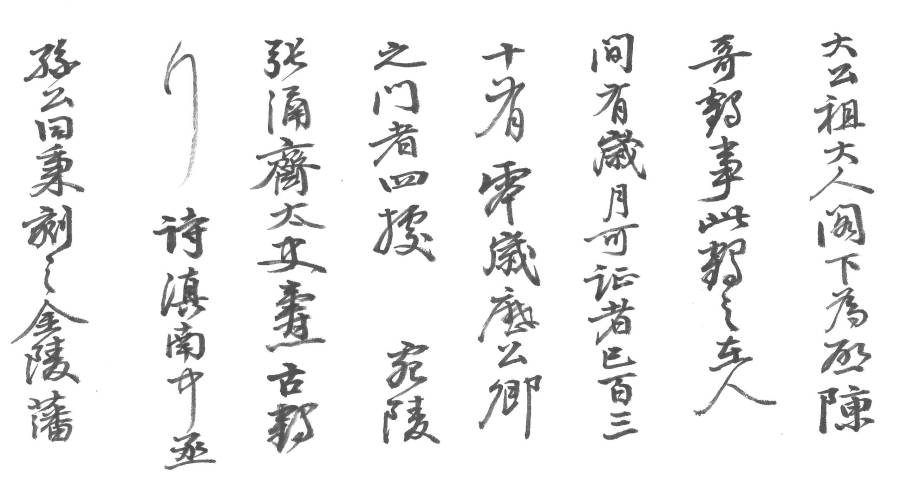 大公祖大人閣下為啟陳
奇鶴事此鶴之在人
間有歲月可証者已百三
十有零歲歷公卿
之門者四據 宛陵
張涌齋太史壽古鶴
行 詩滇南中丞
孫公曰秉刻之金陵藩